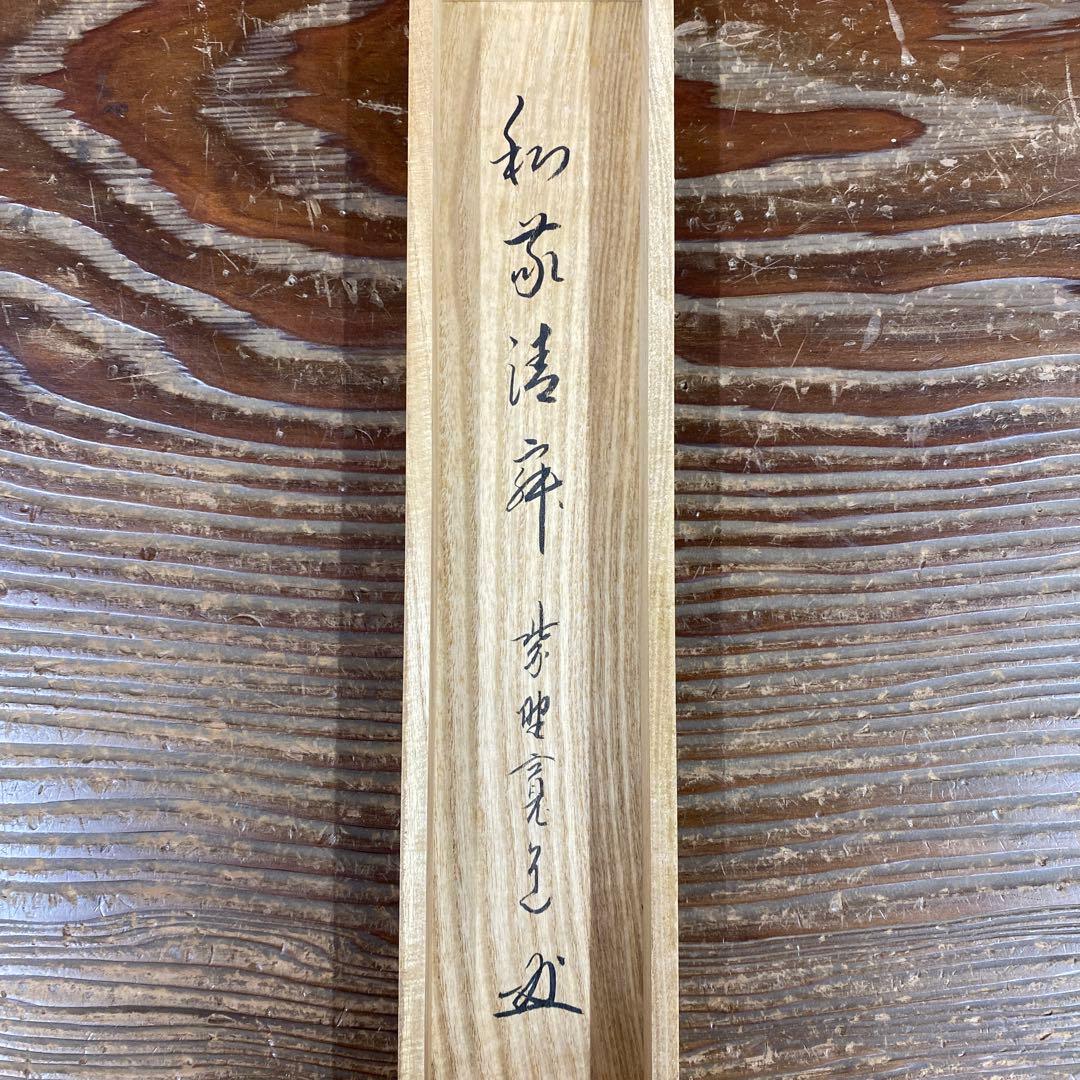 和敬清寂 紫野寛道